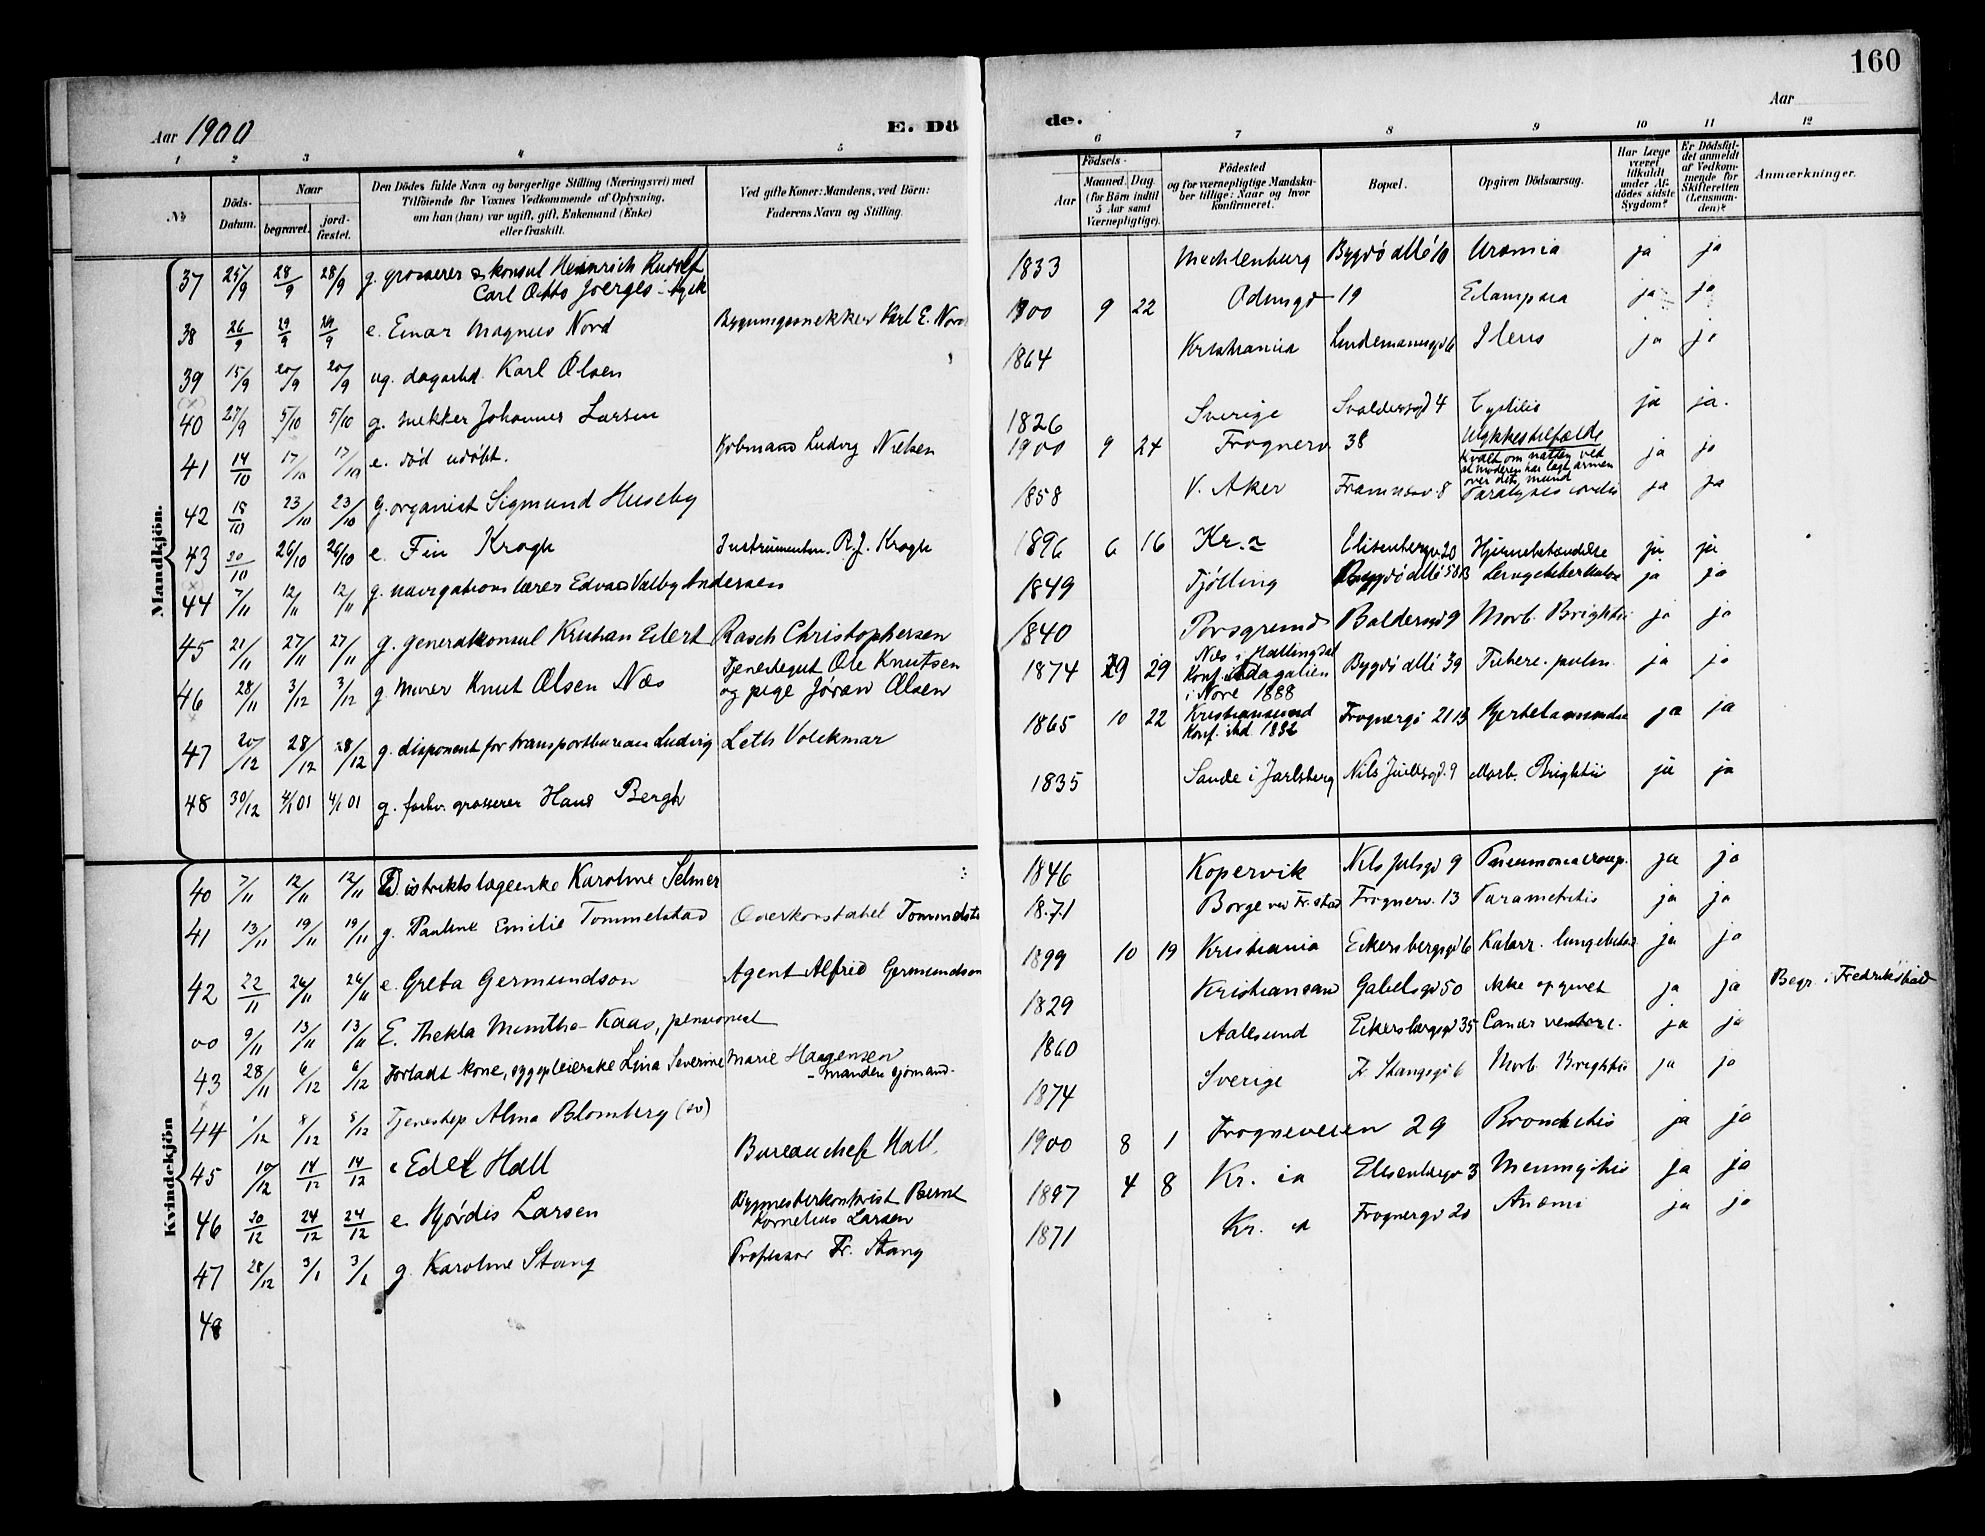 160
Aar 1900
E. Dö de.
Aar
1 2 3 4 5 6 7 8 9 10 11 12
No
Döds-Datum.
Naar begravet. jord-fæstet.
Den Dödes fulde Navn og borgerlige Stilling (Næringsvei) med
Tilföiende for Voxnes Vedkommende af Oplysning,
om han (hun) var ugift, gift, Enkemand (Enke)
eller fraskilt.
Ved gifte Koner: Mandens, ved Börn:
Faderens Navn og Stilling.
Födsels-
Aar Maaned. Dag.
(for Börn indtil
5 Aar samt
Værnepligtige).
Födested
og for værnepligtige Mandska-
ber tillige: Naar og hvor
konfirmeret.
Bopæl.
Opgiven Dödsaarsag.
Har Læge
været
tilkaldt
under Af-
dödes sidste
Sygdom?
Er Dödsfal-
det anmeldt
af Vedkom-
mende for
Skifteretten
(Lensman-
den)?
Anmærkninger.
Mandkjön.
37 25/9 28/9 28/9 g. grosserer & konsul Heinrich Rudolf
Carl Otto Joerges - tysk 1833 Mechlenburg Bygdö allé 10 Uræmia ja ja
38 26/9 29/9 29/9 e. Einar Magnus Nord Bygningssnekker Karl E. Nord 1900 9 22 Odinsgd 19 Eclampsia ja ja
39 15/9 20/9 20/9 ug. dagarbd. Karl Olsen 1864 Kristiania Lindemannsgd 6 Ileus ja ja
40 27/9 5/10 5/10 g. snekker Johannes Larsen 1826 Sverige Svoldersgd 4 Cystitis ja ja.
41 14/10 17/10 17/10 e. död udöbt. Kjöbmand Ludvig Nielsen 1900 9 24 Frognerv. 38 Ulykkestilfælde
Kvalt om natten ved
at moderen har lagt armen
over dets mund ja ja
42 18/10 23/10 23/10 g. organist Sigmund Huseby 1858 V. Aker Framnesv 8 Paralysis cordis ja ja
43 20/10 26/10 26/10 e. Fin Krogh Instrumentm. R. J. Krogh 1896 6 16 Kr.a Elisenbergv. 20 Hjernebetændelse ja ja
44 7/11 12/11 12/11 g. navigationslærer Edvard Valby Andersen 1849 Tjölling Bygdö allé 58B Lungetuberkulose ja ja
45 21/11 27/11 27/11 g. generalkonsul Kristian Eilert Rasch Christophersen 1840 Porsgrund Baldersgd 9 Morb. Brightii ja ja
46 28/11 3/12 3/12 g. Murer Knut Olsen Næs Tjenestegut Ole Knutsen
og pige Jöran Olsen 1874 29 Næs i Hallingdal
Konf. i Dagalien
i Nore 1888 Bygdö allé 39 Tuberc. pulm. ja ja
47 20/12 28/12 28/12 g. disponent for transportbureau Ludvig Leth Volckmar 1865 10 22 Kristiansund
Konf. ibd 1882 Frognergd 21B Hjertelammelse ja ja
48 30/12 4/1 01 4/1 01 g. forhv. grosserer Hans Bergh 1835 Sande i Jarlsberg Nils Juelsgd. 9 Morb. Brightii ja ja
Kvindekjön
40 7/11 12/11 12/11 Distriktslægeenke Karoline Selmer 1846 Kopervik Nils Julsgd 9 Pneumonia croup. ja ja
41 13/11 19/11 19/11 g. Pauline Emilie Tommelstad Overkonstabel Tommelstad 1871 Borge ved Fr.stad Frognerv. 13 Parametritis ja ja
42 22/11 26/11 26/11 e. Greta Germundson Agent Alfred Germundson 1899 10 19 Kristiania Eckersbergsgd 6 Katarr. lungebetæn ja ja
00 9/11 13/11 13/11 E. Thekla Munthe-Kaas, pensionist 1829 Kristiansand Gabelsgd 50 ikke opgivet ja ja Begr. i Fredrikshald
43 28/11 6/12 6/12 Forladt kone, sygepleierske Lina Severine Marie Haagensen
- manden sjömand - 1860 Aalesund Eckersbergsgd 35 Cancer ventric. ja ja
44 1/12 8/12 8/12 Tjenestep Alma Blomberg (sv) 1874 Sverige Fr. Stangsgd 6 Morb. Brightii ja ja
45 10/12 14/12 14/12 e Edel Hall Bureauchef Hall 1900 8 1 Frogneveien 29 Bronchitis ja ja
46 20/12 24/12 24/12 e. Hjördis Larsen Bernt
Kornelius Larsen 1897 4 8 Kr. ia Elisenbergv 3 Meningitis ja ja
47 28/12 3/1 3/1 g. Karoline Stang Professor Fr. Stang 1871 Kr. a Frognergd 20 Anæmi ja ja
48